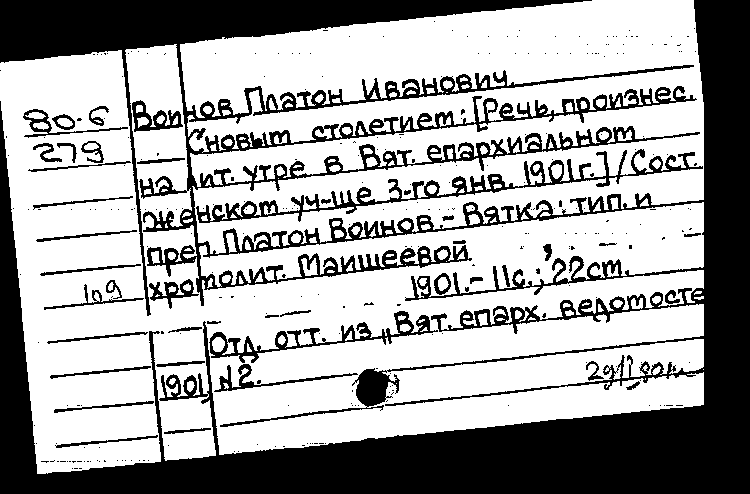 Воинов, Платон Иванович.
80-6
С новым столетием: [Речь, произнес.
279
на лит. утре в Вят. епархиальном
женском уч-ще 3-го янв. 1901г.] / Сост.
преп. Платон Воинов. - Вятка: тип. и
хромолит. Маишеевой
109
1901. - 11с.; 22см.
Отд. отт. из „Вят. епарх. ведомосте
1901, №2.